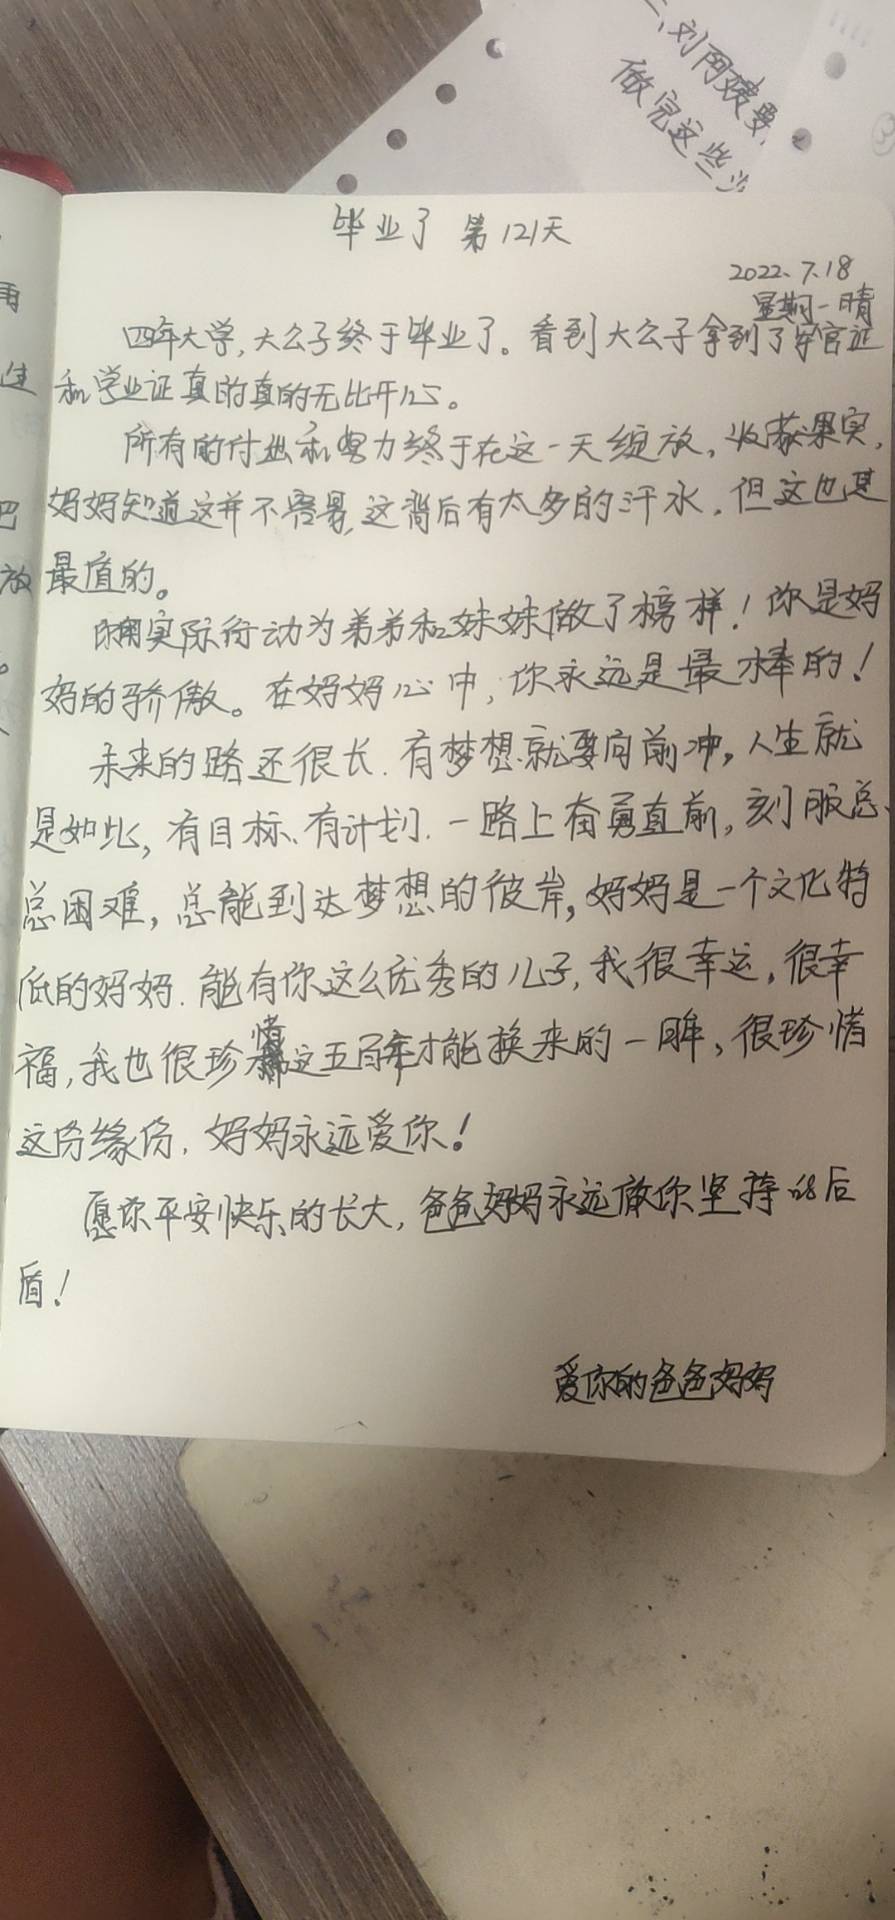 二、刘阿姨要
做完这些
③
毕业了 第121天
2022.7.18
星期一晴
四年大学,大么子终于毕业了。看到大么子拿到了军官证
和学业证真的真的无比开心。
所有的付出和努力终于在这一天绽放,收获果实,
妈妈知道这并不容易,这背后有太多的汗水,但这也是
最值的。
你用实际行动为弟弟和妹妹做了榜样!你是妈
妈的骄傲。在妈妈心中,你永远是最棒的!
未来的路还很长.有梦想.就要向前冲,人生就
是如此,有目标、有计划.一路上奋勇直前,刻服总、
总困难,总能到达梦想的彼岸,妈妈是一个文化特
低的妈妈.能有你这么优秀的儿子,我很幸运,很幸
福,我也很珍惜这五百年才能换来的一眸,很珍惜
这份缘份,妈妈永远爱你!
愿你平安快乐的长大,爸爸妈妈永远做你坚持的后
盾!
爱你的爸爸妈妈